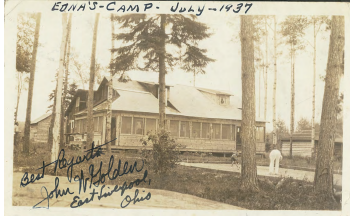 EDNA'S-CAMP-JULY-1937
Best Regards
John W. Golden
East Liverpool,
Ohio